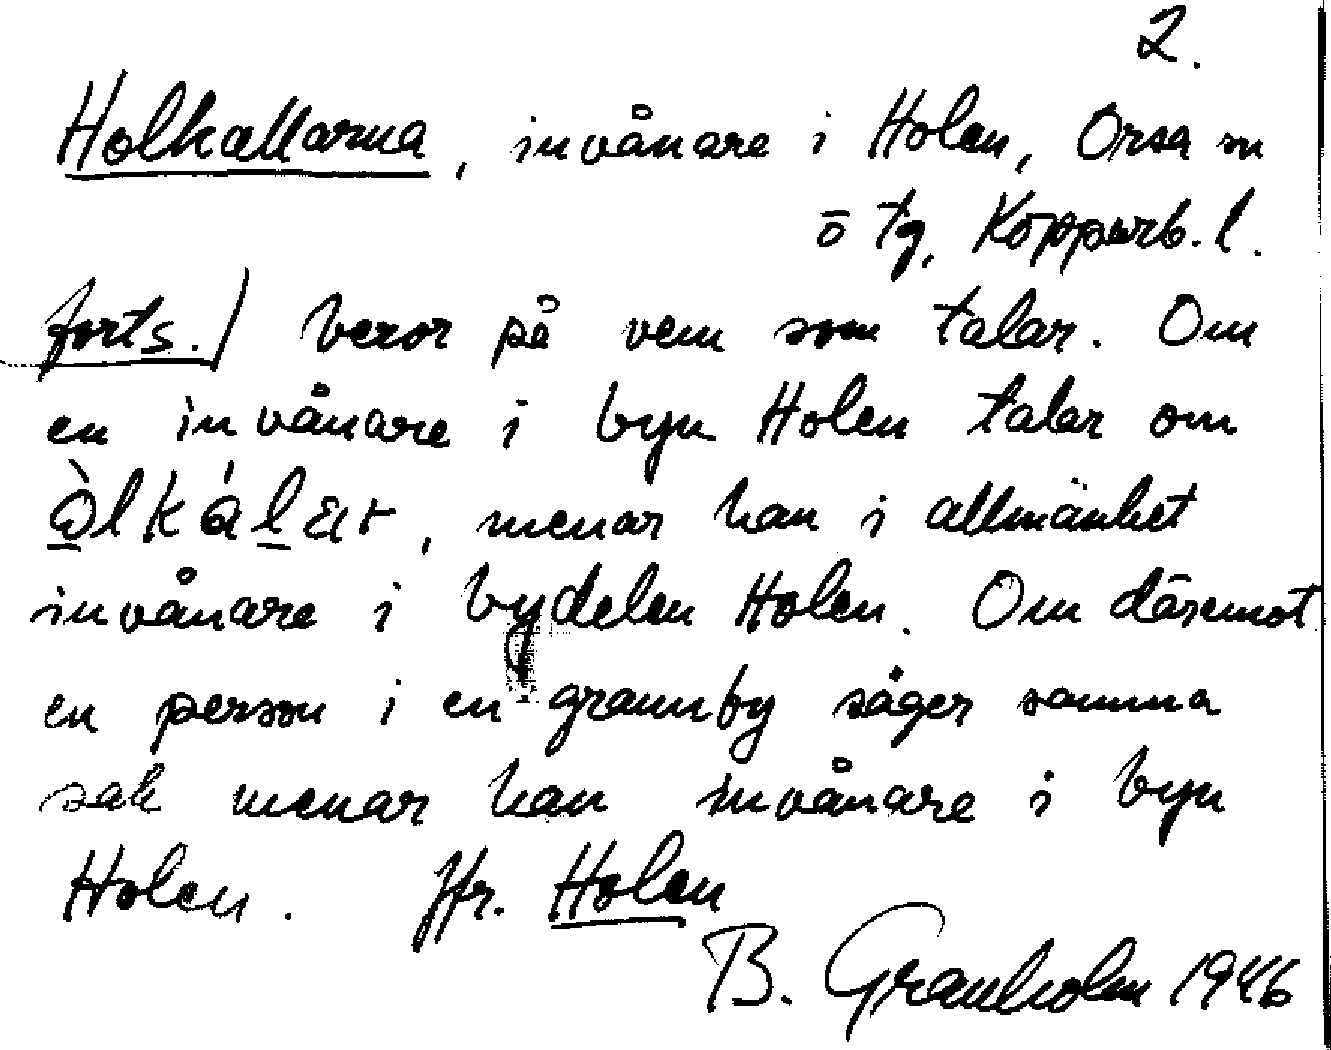 2.
Holkallarna, invånare i Holen, Orsa sn
ö tg, Kopparb. l.
forts.) beror på vem som talar. Om
en invånare i byn Holen talar om
, menar han i allmänhet
invånare i bydelen Holen. Om däremot
en person i en grannby säger samma
sak menar han invånare i byn
Holen. Jfr. Holen
B. Granholm 1946